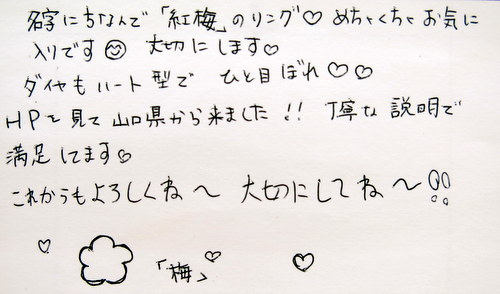 名字にちなんで「紅梅」のリング♡ めちゃくちゃお気に
入りです☺ 大切にします♡
ダイヤもハート型で ひと目ぼれ♡♡
HPを見て山口県から来ました!! 丁寧な説明で
満足してます♡
これからもよろしくね〜 大切にしてね〜!!
「梅」